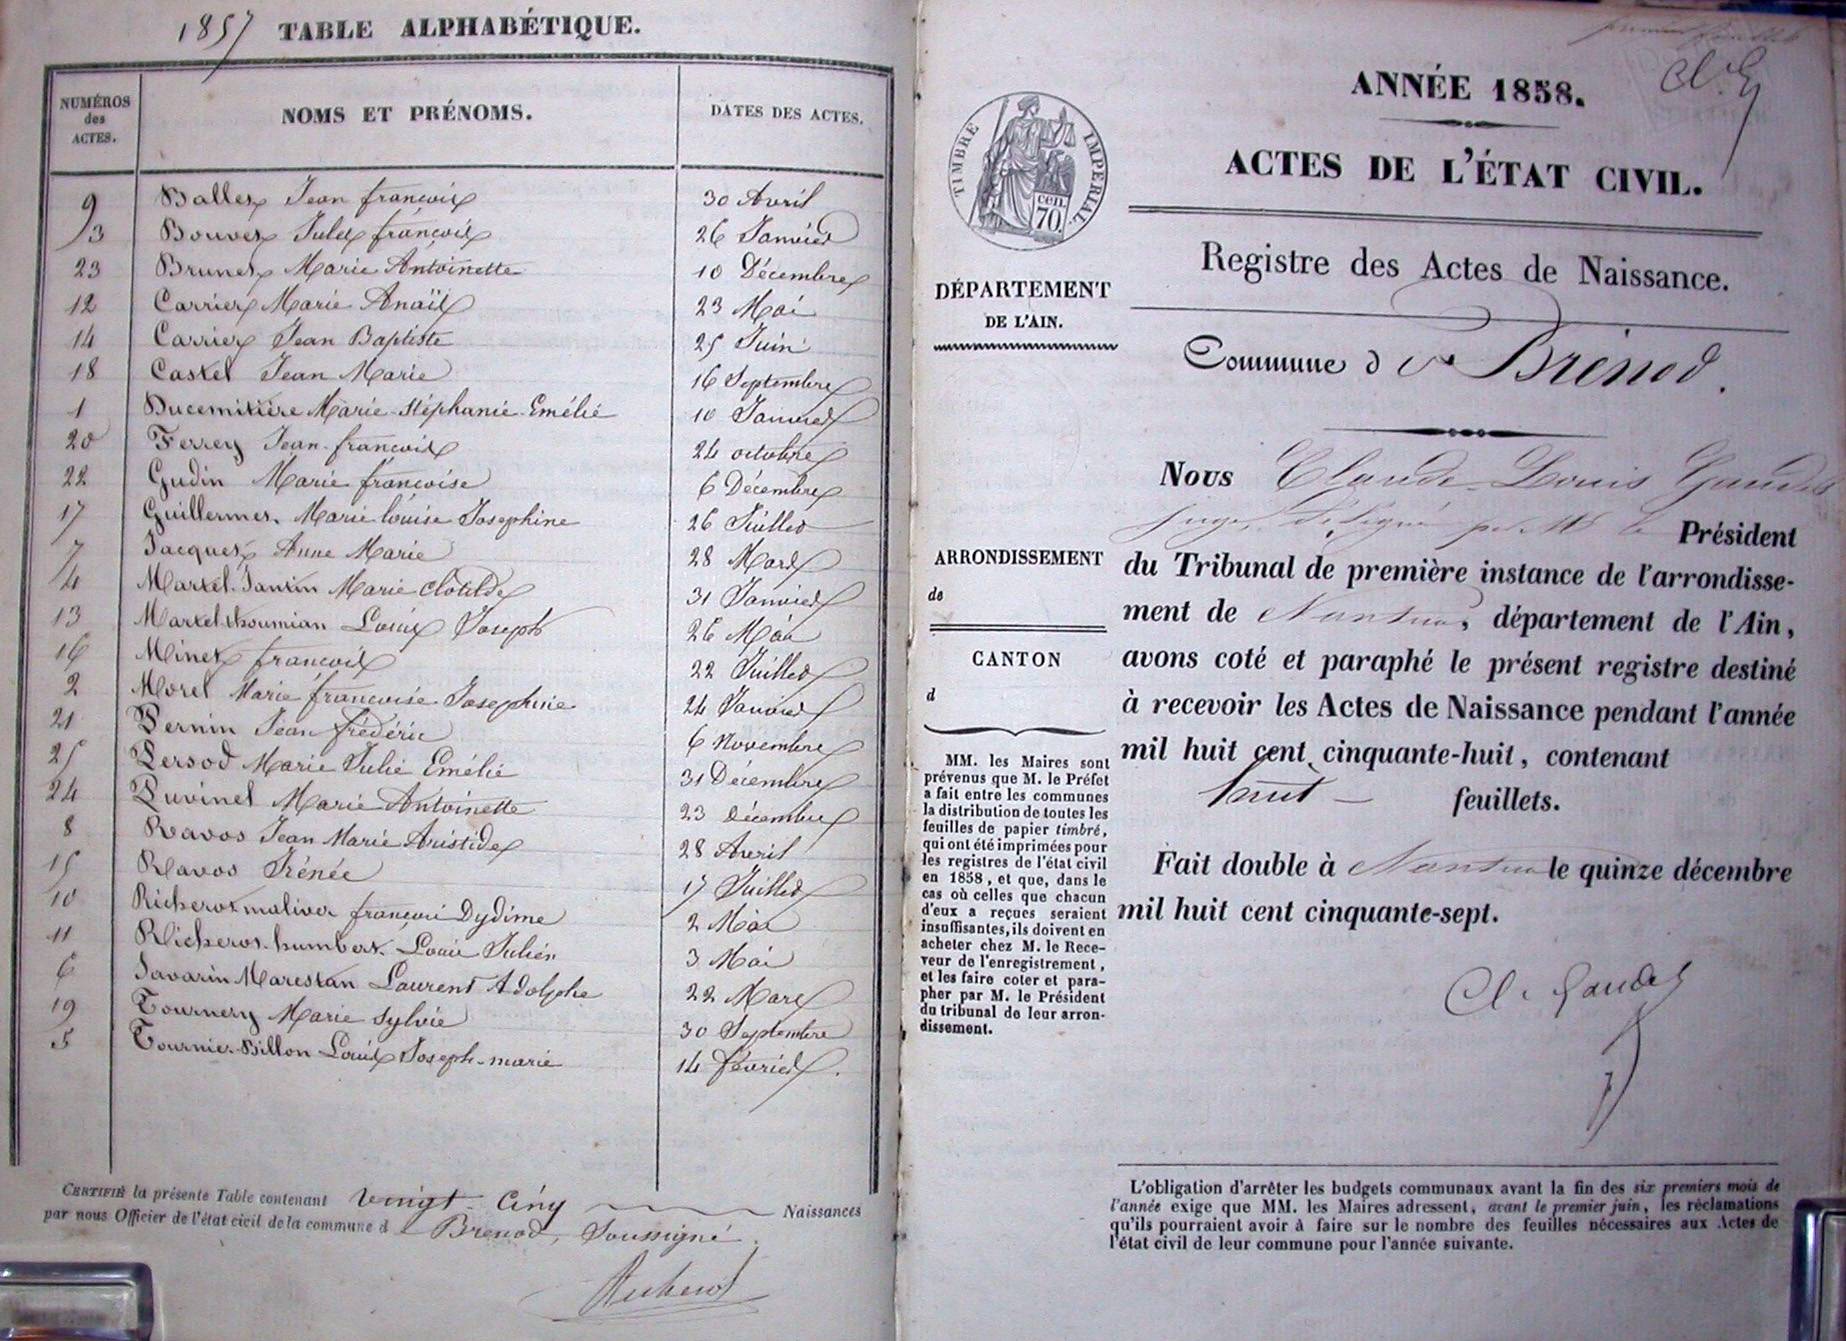 1857 TABLE ALPHABÉTIQUE.
NUMÉROS des ACTES.
NOMS ET PRÉNOMS.
DATES DES ACTES.
9 Ballet Jean françois 30 Avril
3 Bouvet Jules françois 26 Janvier
23 Brunet Marie Antoinette 10 Décembre
12 Carrier Marie Anaïs 23 Mai
14 Carrier Jean Baptiste 25 Juin
18 Castel Jean Marie 16 Septembre
1 Ducimitière Marie-Stéphanie-Emélie 10 Janvier
20 Ferrey Jean-françois 24 octobre
22 Gudin Marie françoise 6 Décembre
17 Guillermet Marie louise Josephine 26 Juillet
7 Jacquet Anne Marie 28 Mars
4 Martel-Jantin Marie Clotilde 31 Janvier
13 Martel-thoumian Louis Joseph 26 Mai
16 Minet françois 22 Juillet
2 Morel Marie françoise Josephine 24 Janvier
21 Pernin Jean frédéric 6 Novembre
25 Persod Marie Julie Emélie 31 Décembre
24 Puvinel Marie Antoinette 23 décembre
8 Ravot Jean Marie Aristide 28 Avril
15 Ravot Irénée 17 Juillet
10 Richerot-maliver françois Dydime 2 Mai
11 Richerot-humbert Louis Julien 3 Mai
6 Savarin Marestan Laurent Adolphe 22 Mars
19 Tournery Marie Sylvie 30 Septembre
5 Tournier-Billon Louis Joseph-marie 14 février.
CERTIFIÉ la présente Table contenant vingt-cinq Naissances
par nous Officier de l'état civil de la commune de Brenod, Soussigné.
ANNÉE 1858.
Cl. G
ACTES DE L'ÉTAT CIVIL.
TIMBRE IMPÉRIAL.
cen. 70.
Registre des Actes de Naissance.
DÉPARTEMENT
DE L'AIN.
Commune de Brénod.
Nous Claude-Louis Gaudet
juge délégué par Mr le Président
du Tribunal de première instance de l'arrondisse-
ment de Nantua, département de l'Ain,
avons coté et paraphé le présent registre destiné
à recevoir les Actes de Naissance pendant l'année
mil huit cent cinquante-huit, contenant
huit feuillets.
Fait double à Nantua le quinze décembre
mil huit cent cinquante-sept.
Cl. Gaudet
ARRONDISSEMENT
de
CANTON
d
MM. les Maires sont
prévenus que M. le Préfet
a fait entre les communes
la distribution de toutes les
feuilles de papier timbré,
qui ont été imprimées pour
les registres de l'état civil
en 1858, et que, dans le
cas où celles que chacun
d'eux a reçues seraient
insuffisantes, ils doivent en
acheter chez M. le Rece-
veur de l'enregistrement,
et les faire coter et para-
pher par M. le Président
du tribunal de leur arron-
dissement.
L'obligation d'arrêter les budgets communaux avant la fin des six premiers mois de
l'année exige que MM. les Maires adressent, avant le premier juin, les réclamations
qu'ils pourraient avoir à faire sur le nombre des feuilles nécessaires aux Actes de
l'état civil de leur commune pour l'année suivante.